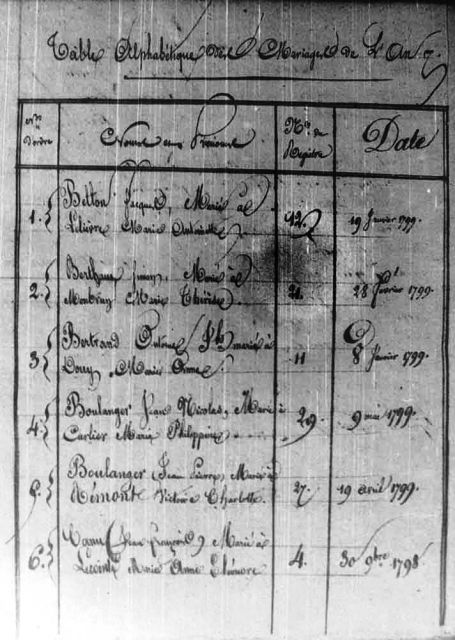 Table Alphabétique des Mariages de L'An 7.
Nos d'ordre
Noms et Prénoms
No. du Registre
Date
1. Belton Jacques, Marié à
Lelièvre Marie Antoinette
12.
19 Janvier 1799.
2. Marié à
Marie Thérèse
21.
28 Février 1799.
3. Bertrand Antoine marié à
Marie Anne
11
8 Janvier 1799.
4. Boulanger Jean Nicolas, Marié à
Cartier Marie Philippine
29
9 mai 1799.
5. Boulanger (Jean Pierre) Marié à
Rémont Victoire Charlotte
27.
19 avril 1799.
6. (Jean François) Marié à
Lecointe Marie Anne Eléonore
4.
30 9bre 1798